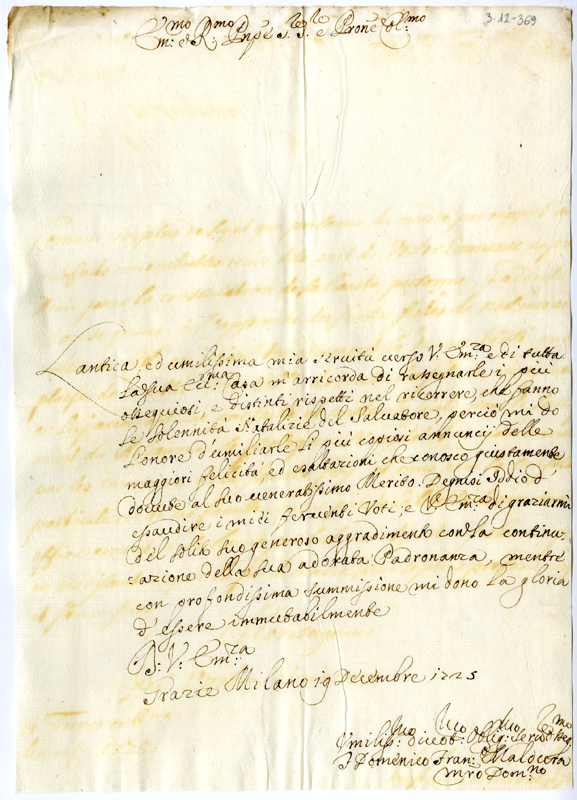 3-12-369
Em:mo e R:mo Pnpe S.re S.re e Prone Col:mo
L'antica, ed umilissima mia servitù verso V: Em:za e di tutta
la sua Ecc:ma Casa m'arricorda di rassegnarle i più
ossequiosi, e distinti rispetti nel ricorrere, che fanno
le solennità Natalizie del Salvatore, perciò mi do
l'onore d'umiliarle li più copiosi annuncij delle
maggiori felicità, ed esaltazioni che conosco giustamente
dovute al suo veneratissimo Merito. Degnisi Iddio d'
esaudire i miei ferventi Voti; e V: Em:za di graziarmi
del solito suo generoso aggradimento con la continu-
:azione della sua adorata Padronanza, mentre
con profondissima summissione mi dono la gloria
d'essere immutabilmente
D: V: Em:za
Grazie Milano 19 Decembre 1725
Umiliss:mo divot:mo Oblig:mo Ser:
F Domenico Fran: